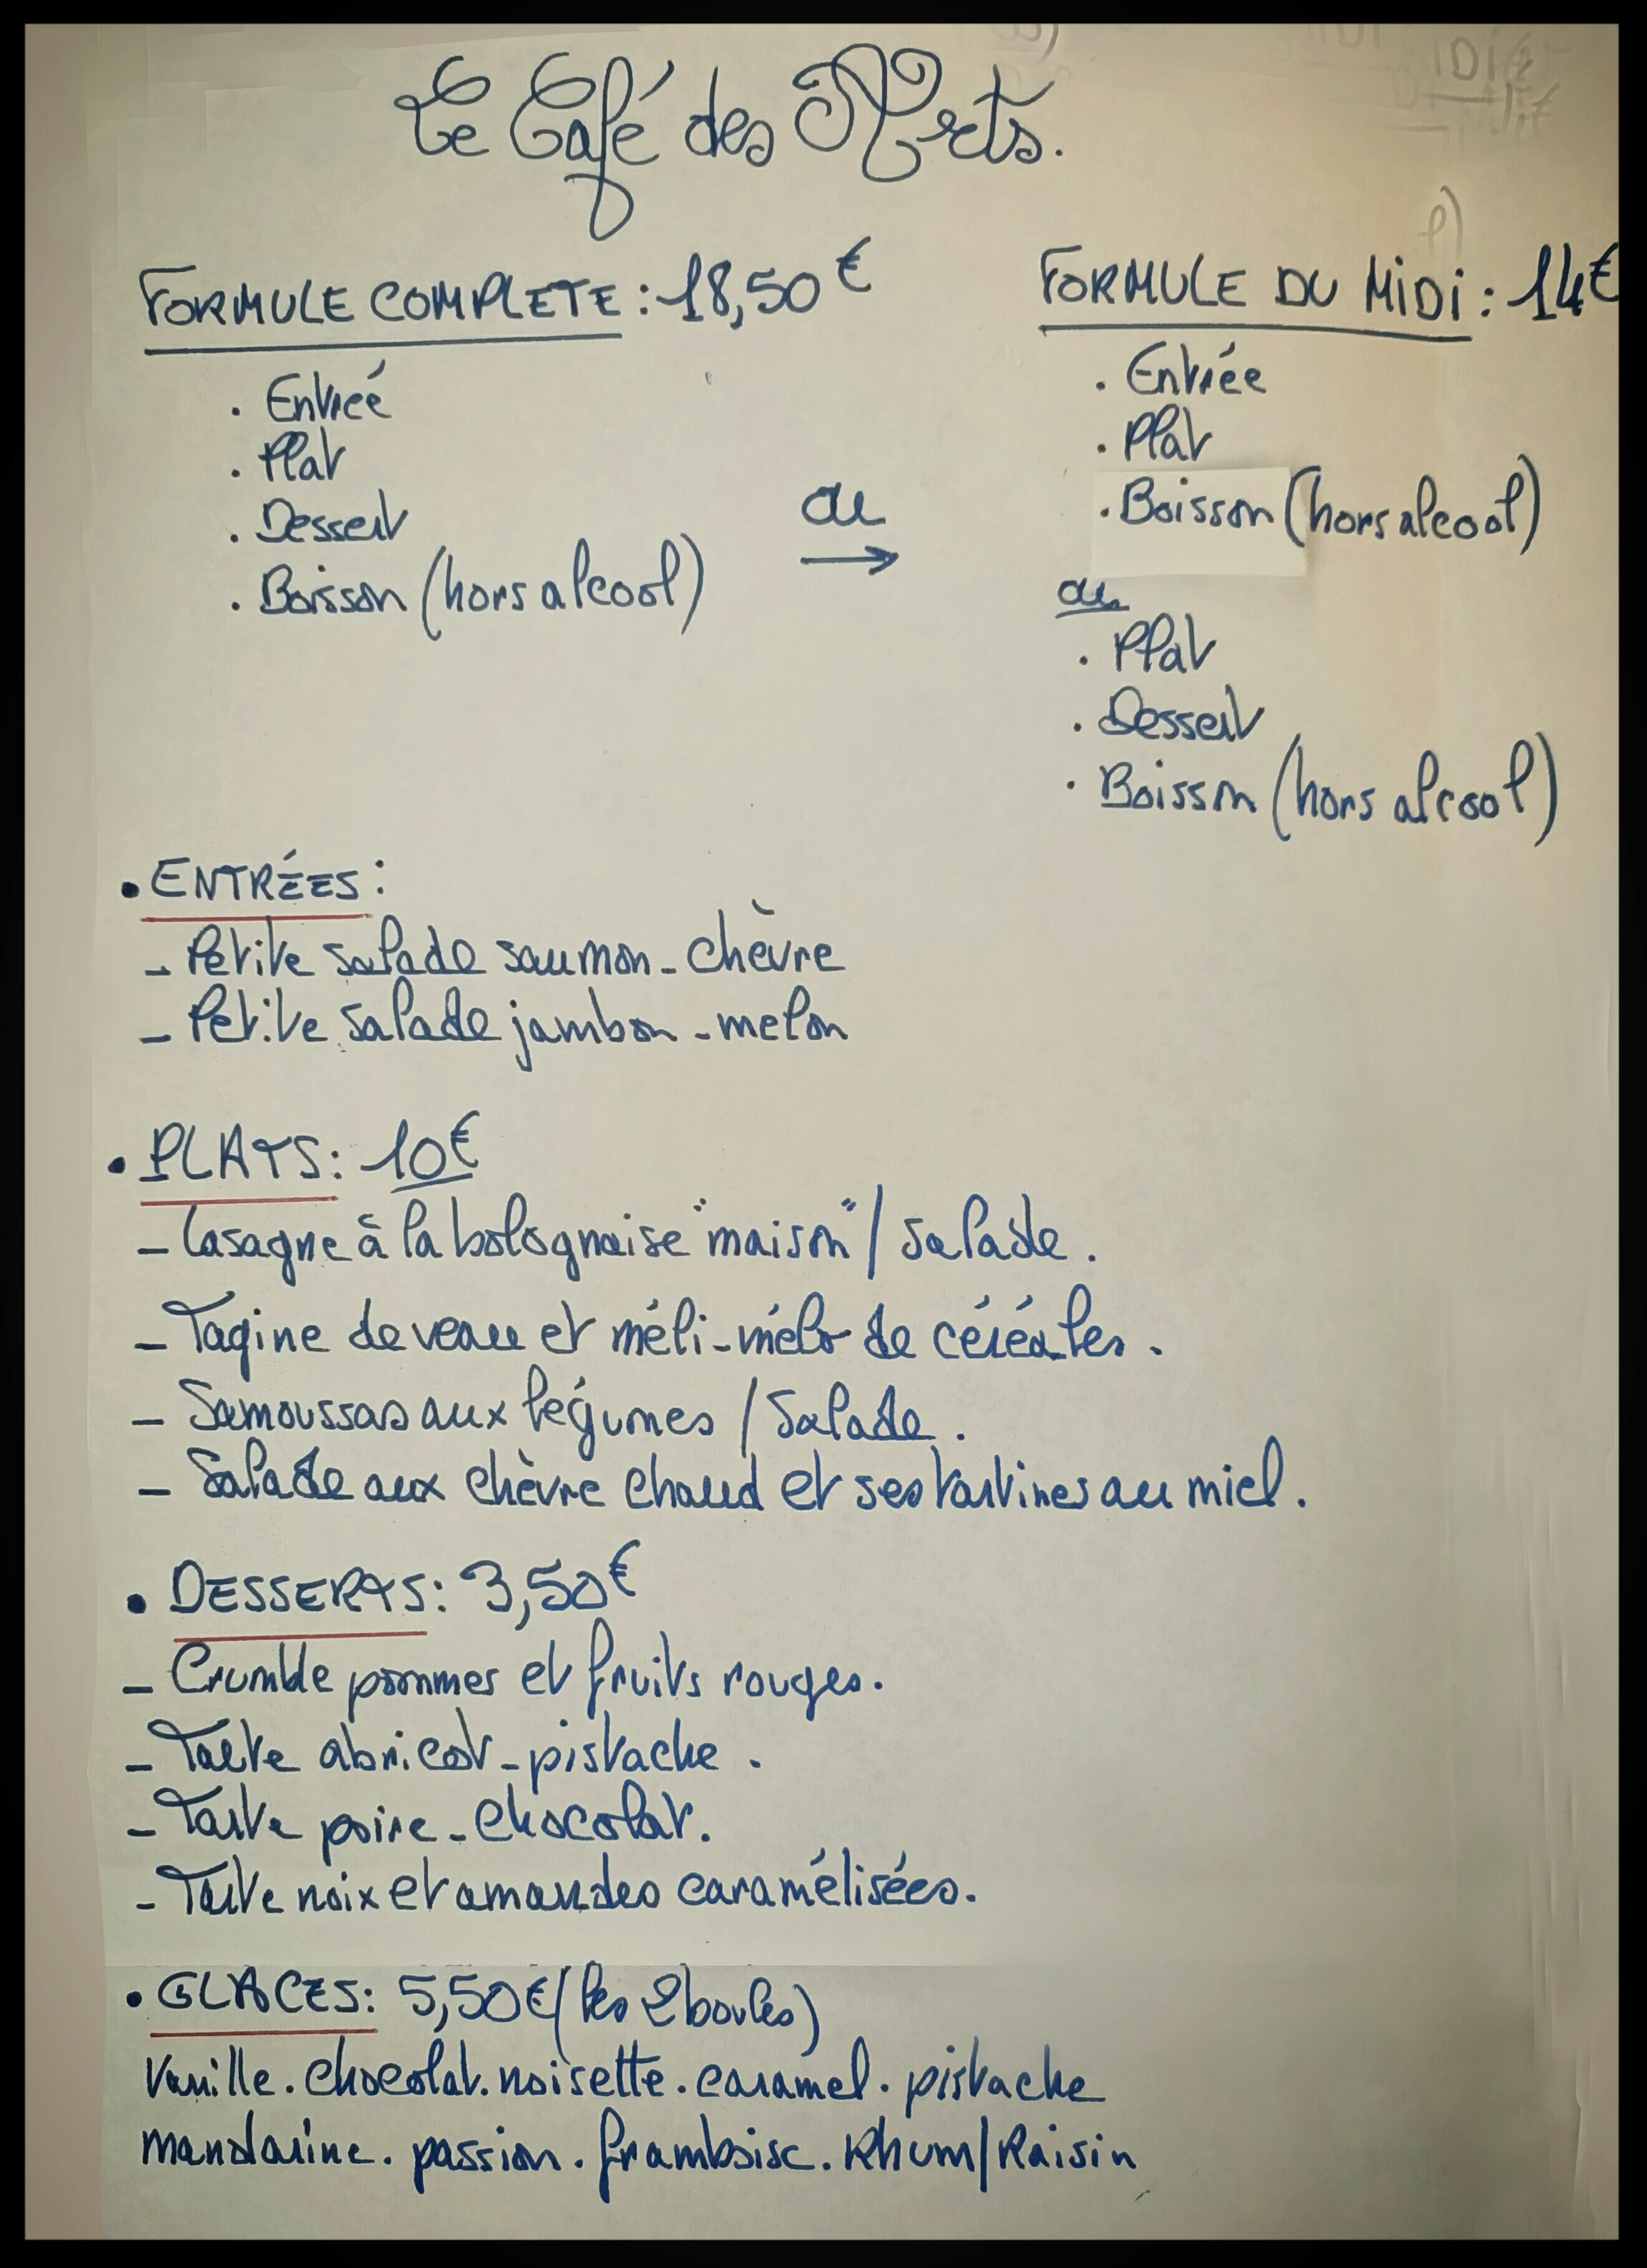 Le Café des Arts.
FORMULE COMPLETE : 18,50€
. Entrée
. Plat
. Dessert
. Boisson (hors alcool)
ou
→
FORMULE DU MiDi : 14€
. Entrée
. Plat
. Boisson (hors alcool)
ou
. Plat
. Dessert
. Boisson (hors alcool)
• ENTRÉES :
- Petite salade saumon - chèvre
- Petite salade jambon - melon
• PLATS : 10€
- Lasagne à la bolognaise "maison" / Salade.
- Tagine de veau et méli-mélo de céréales.
- Samoussas aux légumes / Salade.
- Salade aux chèvre chaud et ses tartines au miel.
• DESSERTS : 3,50€
- Crumble pommes et fruits rouges.
- Tarte abricot - pistache.
- Tarte poire - chocolat.
- Tarte noix et amandes caramélisées.
• GLACES : 5,50€ (les 2 boules)
Vanille. chocolat. noisette. caramel. pistache
mandarine. passion. framboise. Rhum/Raisin